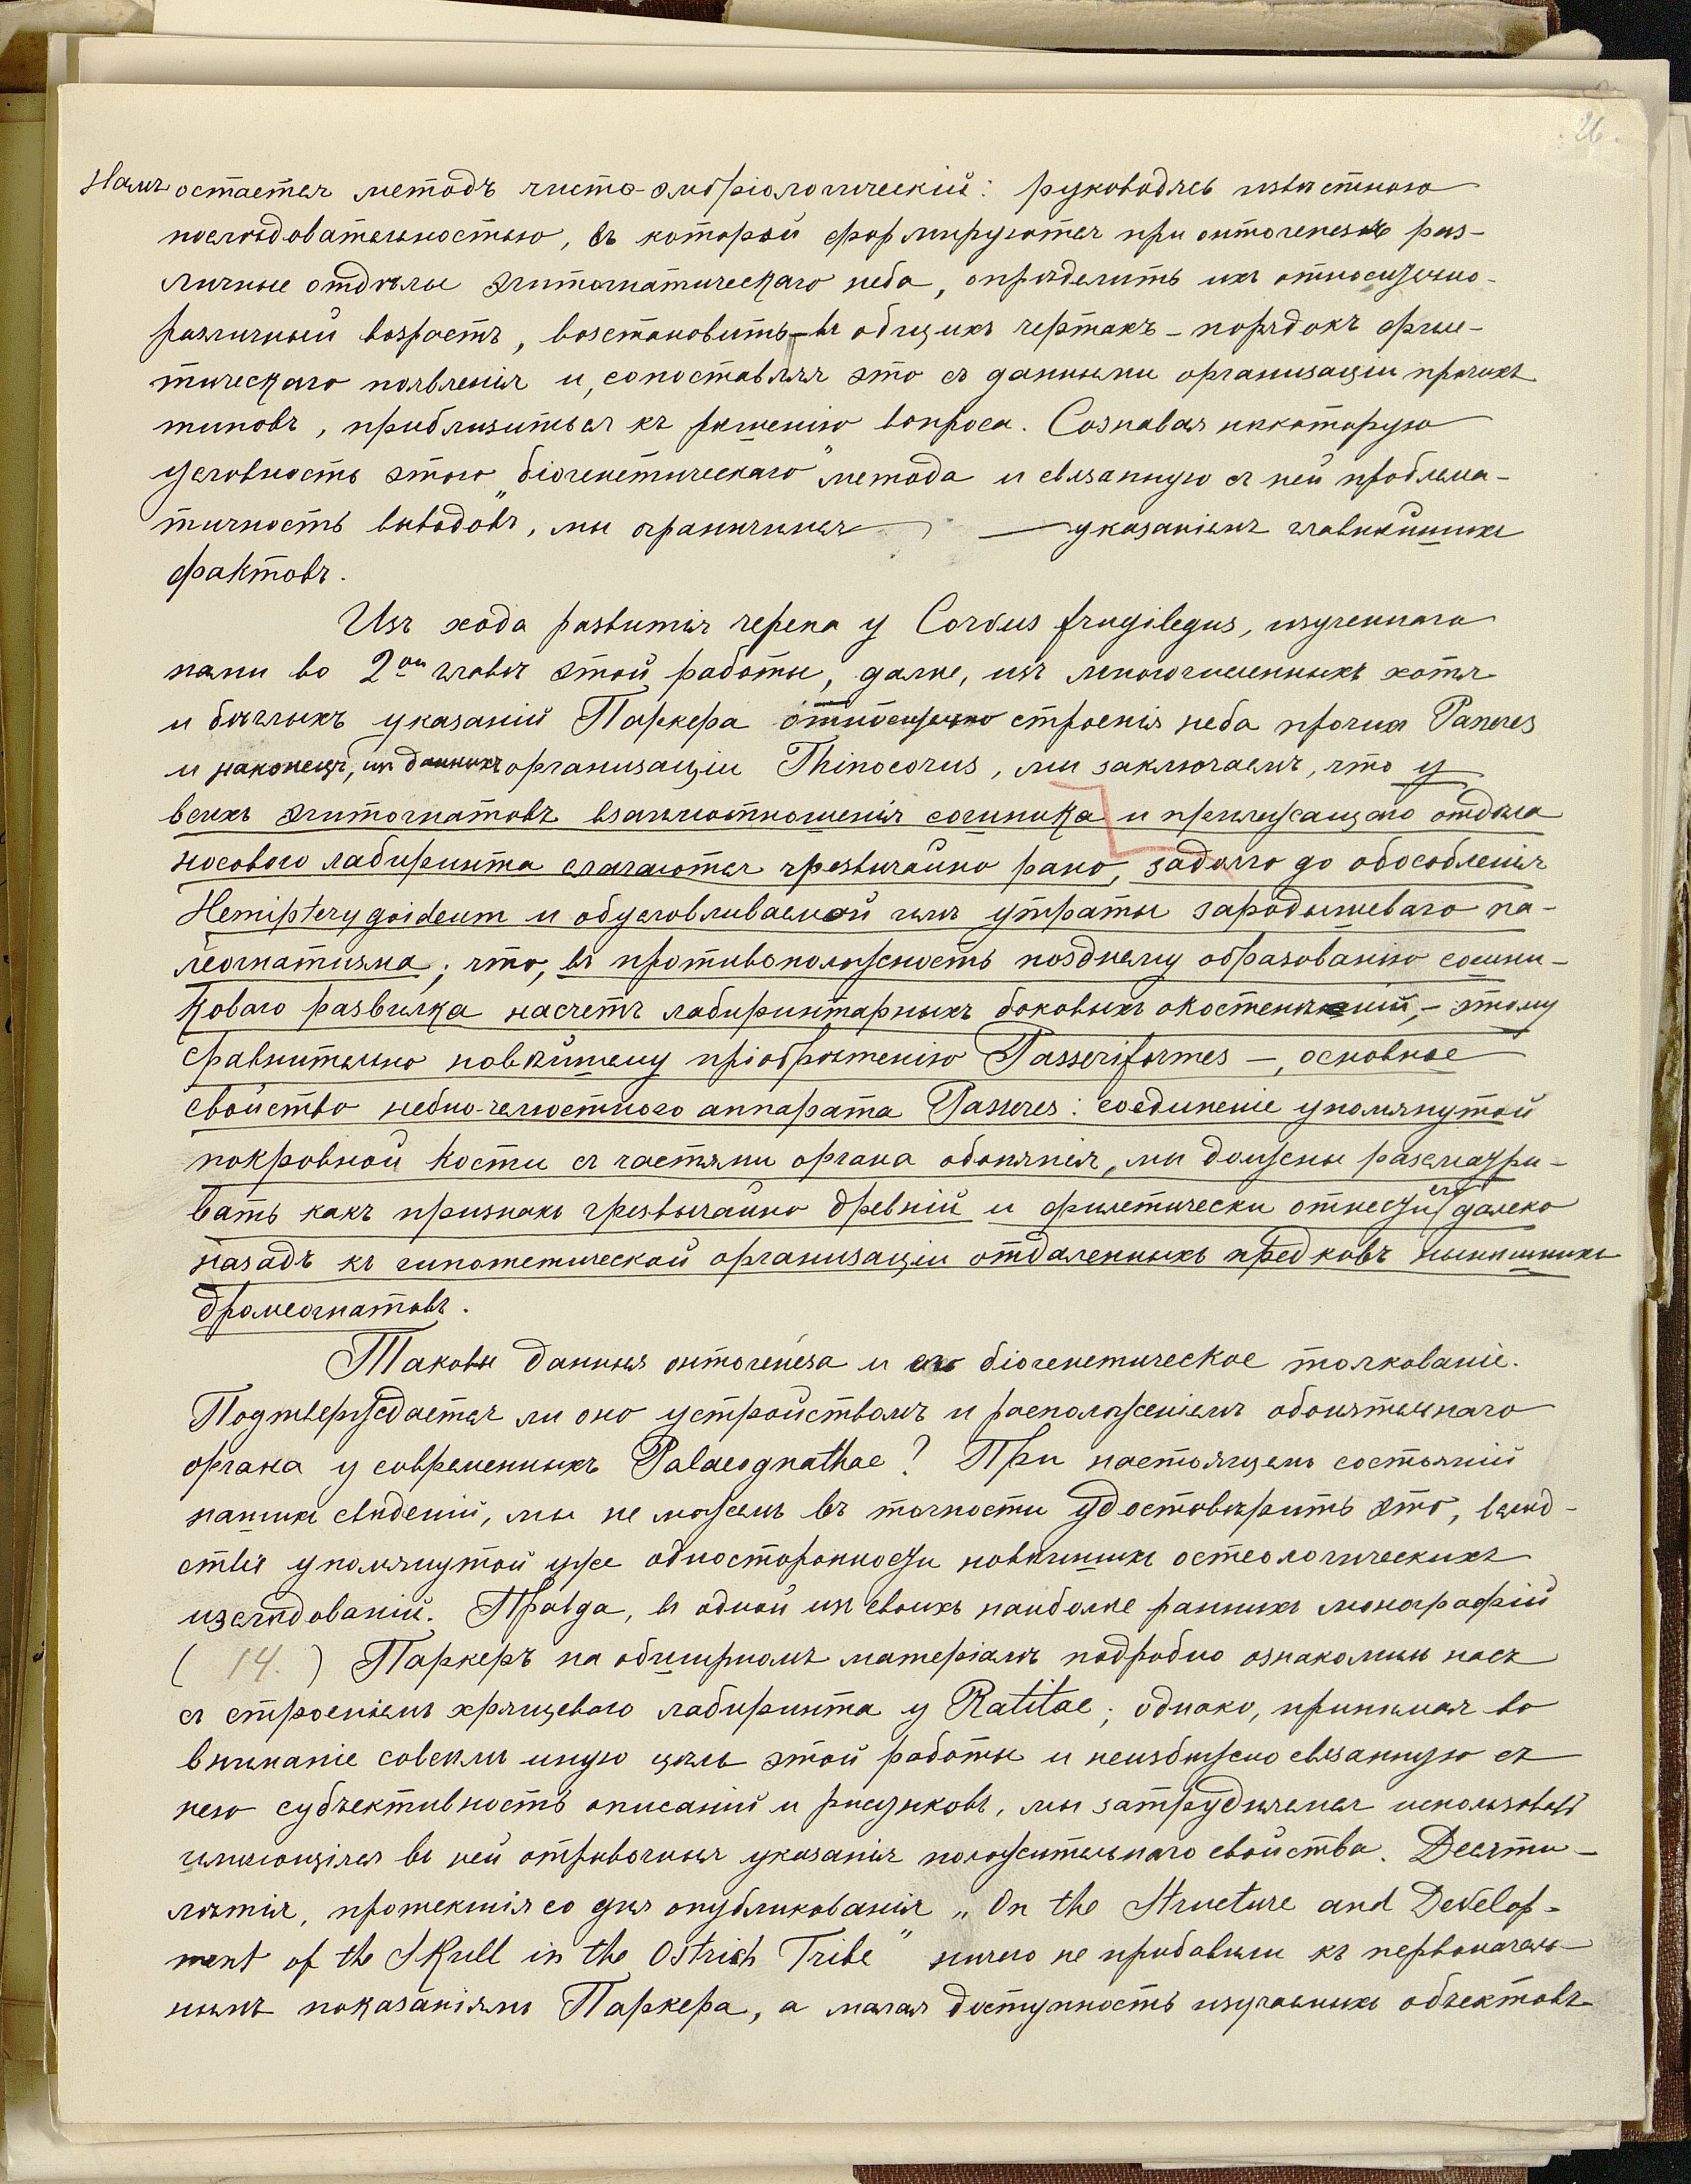 26.
Намъ остается методъ чисто-эмбріологическій: руководясь извѣстною
послѣдовательностью, въ которой формируются при онтогенезѣ раз-
личные отдѣлы эгитогнатическаго неба, опредѣлить ихъ относительно-
различный возрастъ, возстановить – въ общихъ чертахъ – порядокъ филе-
тическаго появленія и, сопоставляя это съ данными организаціи прочихъ
типовъ, приблизиться къ рѣшенію вопроса. Сознавая нѣкоторую
условность этого „біогенетическаго" метода и связанную съ ней пробллема-
тичность выводовъ, мы ограничимся — указаніемъ главнѣйшихъ
фактовъ.
Изъ хода развитія черепа у Corvus frugilegus, изученнаго
нами во 2ой главѣ этой работы, далѣе, изъ многочисленныхъ хотя
и бѣглыхъ указаній Паркера относительно строенія неба прочихъ Passeres
и наконецъ, изъ данныхъ организаціи Thinocorus, мы заключаемъ, что у
всѣхъ эгитогнатовъ взаимоотношенія сошника и прилежащаго отдѣла
носового лабиринта слагаются чрезвычайно рано, задолго до обособленія
Hemipterygoideum и обусловливаемой имъ утраты зародышеваго па-
леогнатизма; что, въ противоположность позднему образованію сошни-
коваго развилка насчетъ лабиринтарныхъ боковыхъ окостенѣній, – этому
сравнительно новѣйшему пріобрѣтенію Passeriformes –, основное
свойство небно-челюстного аппарата Passeres: соединеніе упомянутой
покровной кости съ частями органа обонянія, мы должны разсматри-
вать какъ признакъ чрезвычайно древній и филетически отнести его далеко
назадъ къ гипотетической организаціи отдаленныхъ предковъ нынѣшнихъ
дромеогнатовъ.
Таковы данныя онтогенеза и его біогенетическое толкованіе.
Подтверждается ли оно устройствомъ и расположеніемъ обонятельнаго
органа у современныхъ Palaeognathae? При настоящемъ состояніи
нашихъ свѣденій, мы не можемъ въ точности удостовѣрить это, вслѣд-
ствіе упомянутой уже односторонности новѣйшихъ остеологическихъ
изслѣдованій. Правда, въ одной изъ своихъ наиболѣе раннихъ монографій
( 14. ) Паркеръ на обширномъ матеріалѣ подробно ознакомилъ насъ
съ строеніемъ хрящеваго лабиринта у Ratitae; однако, принимая во
вниманіе совсѣмъ иную цѣль этой работы и неизбѣжно связанную съ
нею субъективность описаній и рисунковъ, мы затрудняемся использовать
имѣющіяся въ ней отрывочныя указанія положительнаго свойства. Десяти-
лѣтія, протекшія со дня опубликованія „On the Structure and Develop-
ment of the Skull in the Ostrich Tribe" ничего не прибавили къ первоначаль-
нымъ показаніямъ Паркера, а малая доступность изучаемыхъ объектовъ